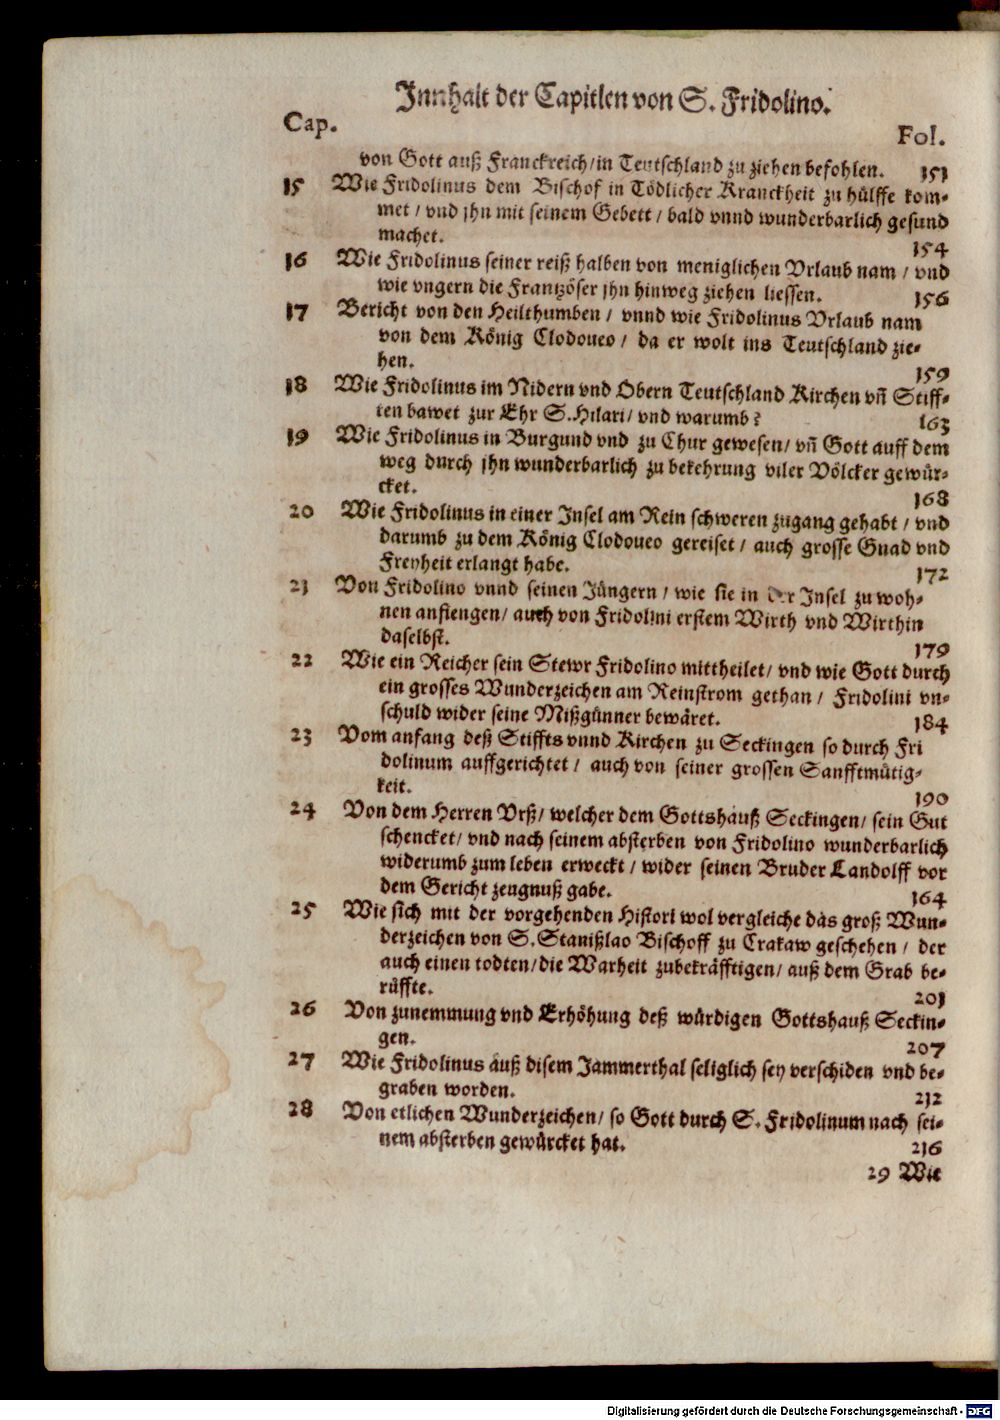 Innhalt der Capitlen von S. Fridolino.
Cap. Fol.
von Gott auß Franckreich/in Teutschland zu ziehen befohlen. 151
15 Wie Fridolinus dem Bischof in Tödlicher Kranckheit zu hülffe kom-
met / vnd jhn mit seinem Gebett / bald vnnd wunderbarlich gesund
machet. 154
16 Wie Fridolinus seiner reiß halben von meniglichen Vrlaub nam / vnd
wie vngern die Frantzöser jhn hinweg ziehen liessen. 156
17 Bericht von den Heilthumben / vnnd wie Fridolinus Vrlaub nam
von dem König Clodoueo / da er wolt ins Teutschland zie-
hen. 159
18 Wie Fridolinus im Nidern vnd Obern Teutschland Kirchen vñ Stiff-
ten bawet zur Ehr S. Hilari/ vnd warumb? 163
19 Wie Fridolinus in Burgund vnd zu Chur gewesen/ vñ Gott auff dem
weg durch jhn wunderbarlich zu bekehrung viler Völcker gewür-
cket. 168
20 Wie Fridolinus in einer Insel am Rein schweren zugang gehabt / vnd
darumb zu dem König Clodoueo gereiset / auch grosse Gnad vnd
Freyheit erlangt habe. 172
21 Von Fridolino vnnd seinen Jüngern / wie sie in der Insel zu woh-
nen anfiengen/ auch von Fridolini erstem Wirth vnd Wirthin
daselbst. 179
22 Wie ein Reicher sein Stewr Fridolino mittheilet/ vnd wie Gott durch
ein grosses Wunderzeichen am Reinstrom gethan / Fridolini vn-
schuld wider seine Mißgünner bewäret. 184
23 Vom anfang deß Stiffts vnnd Kirchen zu Seckingen so durch Fri
dolinum auffgerichtet / auch von seiner grossen Sanfftmütig-
keit. 190
24 Von dem Herren Vrß/ welcher dem Gottshauß Seckingen/ sein Gut
schencket/ vnd nach seinem absterben von Fridolino wunderbarlich
widerumb zum leben erweckt / wider seinen Bruder Landolff vor
dem Gericht zeugnuß gabe. 164
25 Wie sich mit der vorgehenden Histori wol vergleiche das groß Wun-
derzeichen von S. Stanißlao Bischoff zu Crakaw geschehen / der
auch einen todten/ die Warheit zubekräfftigen/ auß dem Grab be-
rüffte. 201
26 Von zunemmung vnd Erhöhung deß würdigen Gottshauß Seckin-
gen. 207
27 Wie Fridolinus auß disem Jammerthal seliglich sey verschiden vnd be-
graben worden. 212
28 Von etlichen Wunderzeichen/ so Gott durch S. Fridolinum nach sei-
nem absterben gewürcket hat. 216
29 Wie
Digitalisierung gefördert durch die Deutsche Forschungsgemeinschaft - DFG